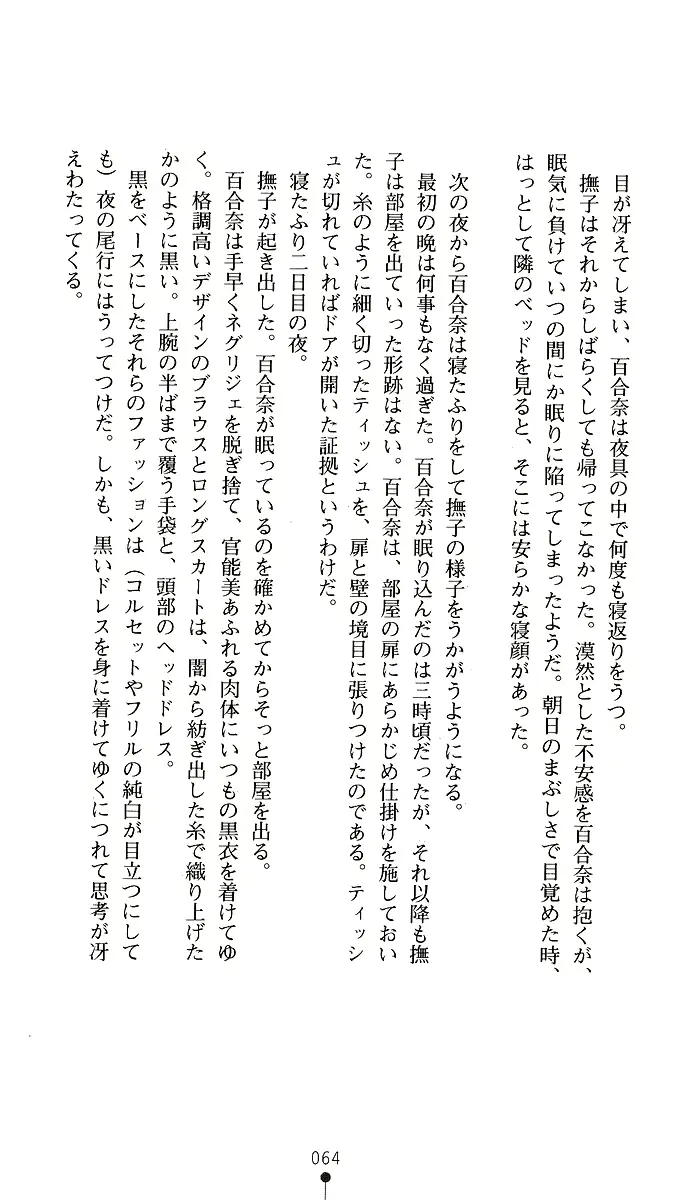 目が冴えてしまい、百合奈は夜具の中で何度も寝返りをうつ。
撫子はそれからしばらくしても帰ってこなかった。漠然とした不安感を百合奈は抱くが、
眠気に負けていつの間にか眠りに陥ってしまったようだ。朝日のまぶしさで目覚めた時、
はっとして隣のベッドを見ると、そこには安らかな寝顔があった。
次の夜から百合奈は寝たふりをして撫子の様子をうかがうようになる。
最初の晩は何事もなく過ぎた。百合奈が眠り込んだのは三時頃だったが、それ以降も撫
子は部屋を出ていった形跡はない。百合奈は、部屋の扉にあらかじめ仕掛けを施しておい
た。糸のように細く切ったティッシュを、扉と壁の境目に張りつけたのである。ティッシ
ュが切れていればドアが開いた証拠というわけだ。
寝たふり二日目の夜。
撫子が起き出した。百合奈が眠っているのを確かめてからそっと部屋を出る。
百合奈は手早くネグリジェを脱ぎ捨て、官能美あふれる肉体にいつもの黒衣を着けてゆ
く。格調高いデザインのブラウスとロングスカートは、闇から紡ぎ出した糸で織り上げた
かのように黒い。上腕の半ばまで覆う手袋と、頭部のヘッドドレス。
黒をベースにしたそれらのファッションは（コルセットやフリルの純白が目立つにして
も）夜の尾行にはうってつけだ。しかも、黒いドレスを身に着けてゆくにつれて思考が冴
えわたってくる。
064